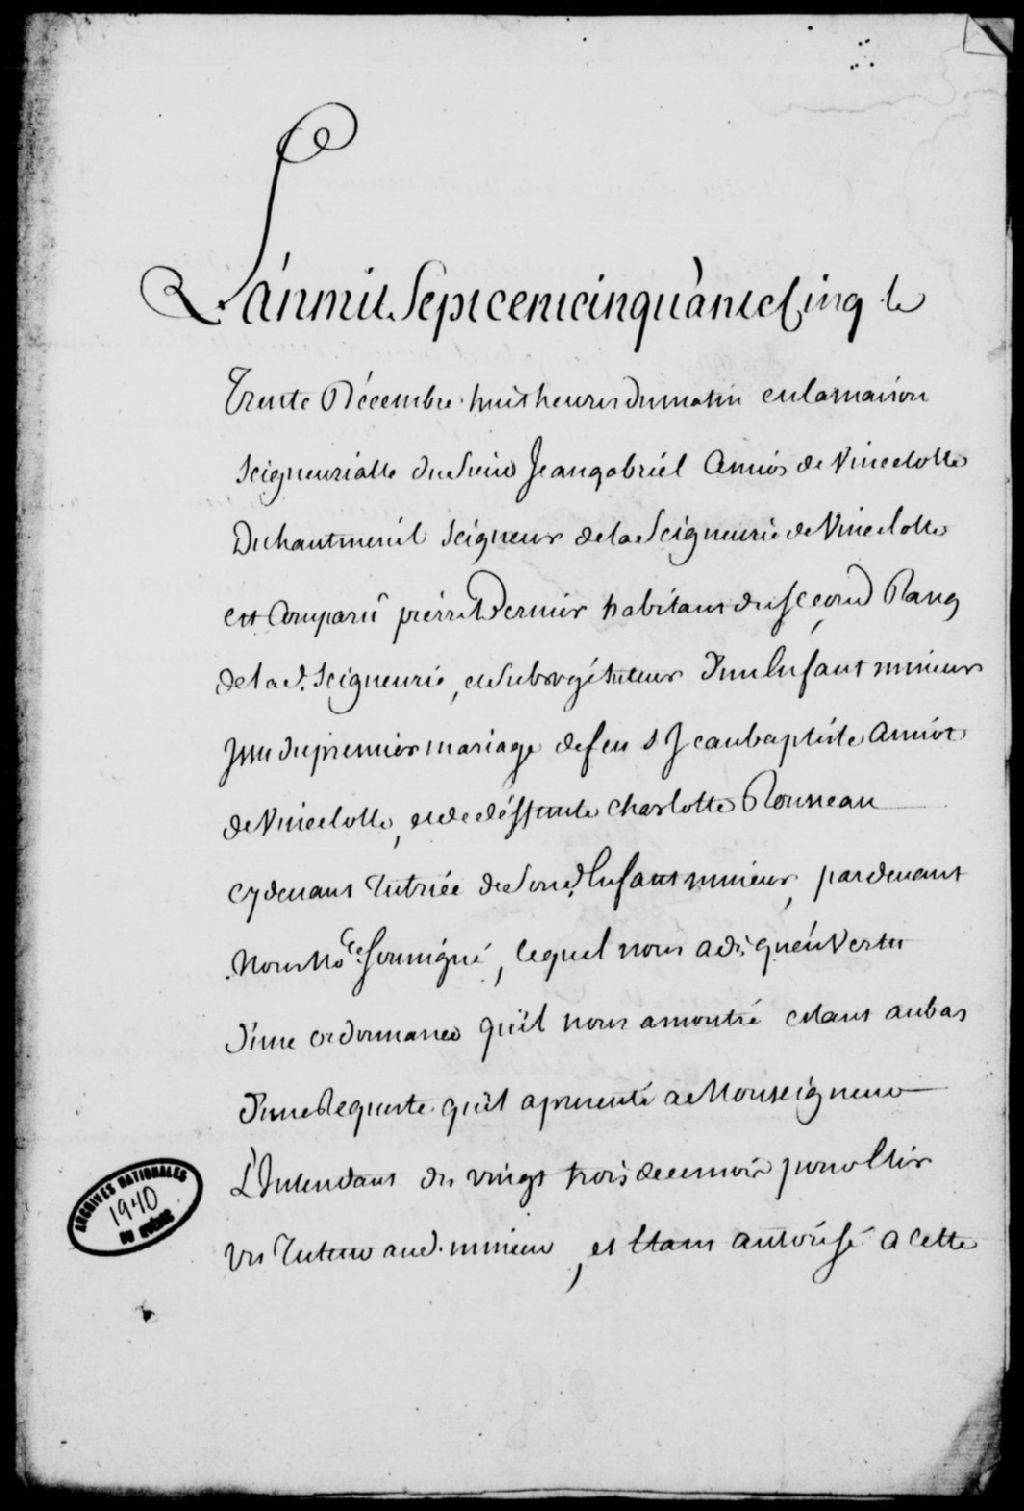 L'an mil Sept cent cinquànte Cinq le
Trente Décembre huit heures du matin en la maison
Seigneurialle du Sieur Jean gabriel Amiot de Vincelotte
Duhautmenil Seigneur de la Seigneurie de Vincelotte
est Comparu pierre Bernier habitant du Second Rang
de la d. Seigneurie, et Subrogé tuteur d'un Enfant mineur
Issu du premier mariage de feu S Jean baptiste Amiot
de Vincelotte, et de déffunte charlotte Rousseau
cy devant Tutrice de Son d. Enfant mineur, par devant
Nous No.re Soussigné, lequel nous a dit qu'en Vertu
d'une ordonnance qu'il nous a montré Etant au bas
d'une Requeste qu'il a presenté a Monseigneur
L'Intendant du vingt trois decembre pour Elire
un Tuteur aud. mineur, et Etant autorisé a cette
ARCHIVES NATIONALES
1940
DU QUÉBEC